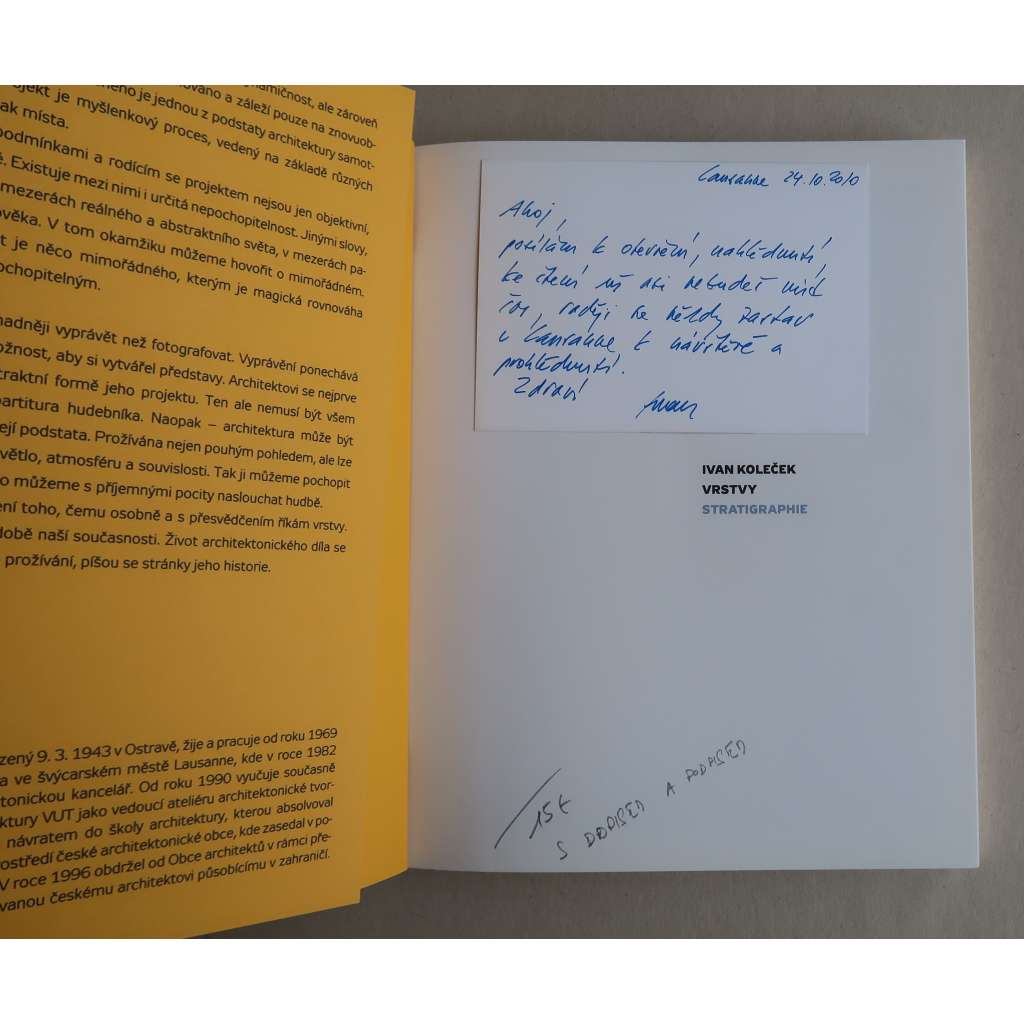 namičnost, ale zároveň
ného je jednou z podstaty architektury samot-
ováno a záleží pouze na znovuob-
ojekt je myšlenkový proces, vedený na základě různých
ak místa.
podmínkami a rodícím se projektem nejsou jen objektivní,
ě. Existuje mezi nimi i určitá nepochopitelnost. Jinými slovy,
mezerách reálného a abstraktního světa, v mezerách pa-
ověka. V tom okamžiku můžeme hovořit o mimořádném.
t je něco mimořádného, kterým je magická rovnováha
ochopitelným.
nadněji vyprávět než fotografovat. Vyprávění ponechává
ožnost, aby si vytvářel představy. Architektovi se nejprve
traktní formě jeho projektu. Ten ale nemusí být všem
partitura hudebníka. Naopak – architektura může být
ejí podstata. Prožívána nejen pouhým pohledem, ale lze
světlo, atmosféru a souvislosti. Tak ji můžeme pochopit
o můžeme s příjemnými pocity naslouchat hudbě.
ení toho, čemu osobně a s přesvědčením říkám vrstvy.
době naší současnosti. Život architektonického díla se
prožívání, píšou se stránky jeho historie.
zený 9. 3. 1943 v Ostravě, žije a pracuje od roku 1969
a ve švýcarském městě Lausanne, kde v roce 1982
tonickou kancelář. Od roku 1990 vyučuje současně
ktury VUT jako vedoucí ateliéru architektonické tvor-
návratem do školy architektury, kterou absolvoval
ostředí české architektonické obce, kde zasedal v po-
V roce 1996 obdržel od Obce architektů v rámci pře-
vanou českému architektovi působícímu v zahraničí.
Lausanne 24.10.2010
Ahoj,
posílám k otevření, nahlédnutí,
ke čtení už asi nebudeš mít
čas, raději se někdy zastav
v Lausanne k návštěvě a
prohlédnutí.
Zdraví
Ivan
IVAN KOLEČEK
VRSTVY
STRATIGRAPHIE
15€
S DOPISEM A PODPISEM